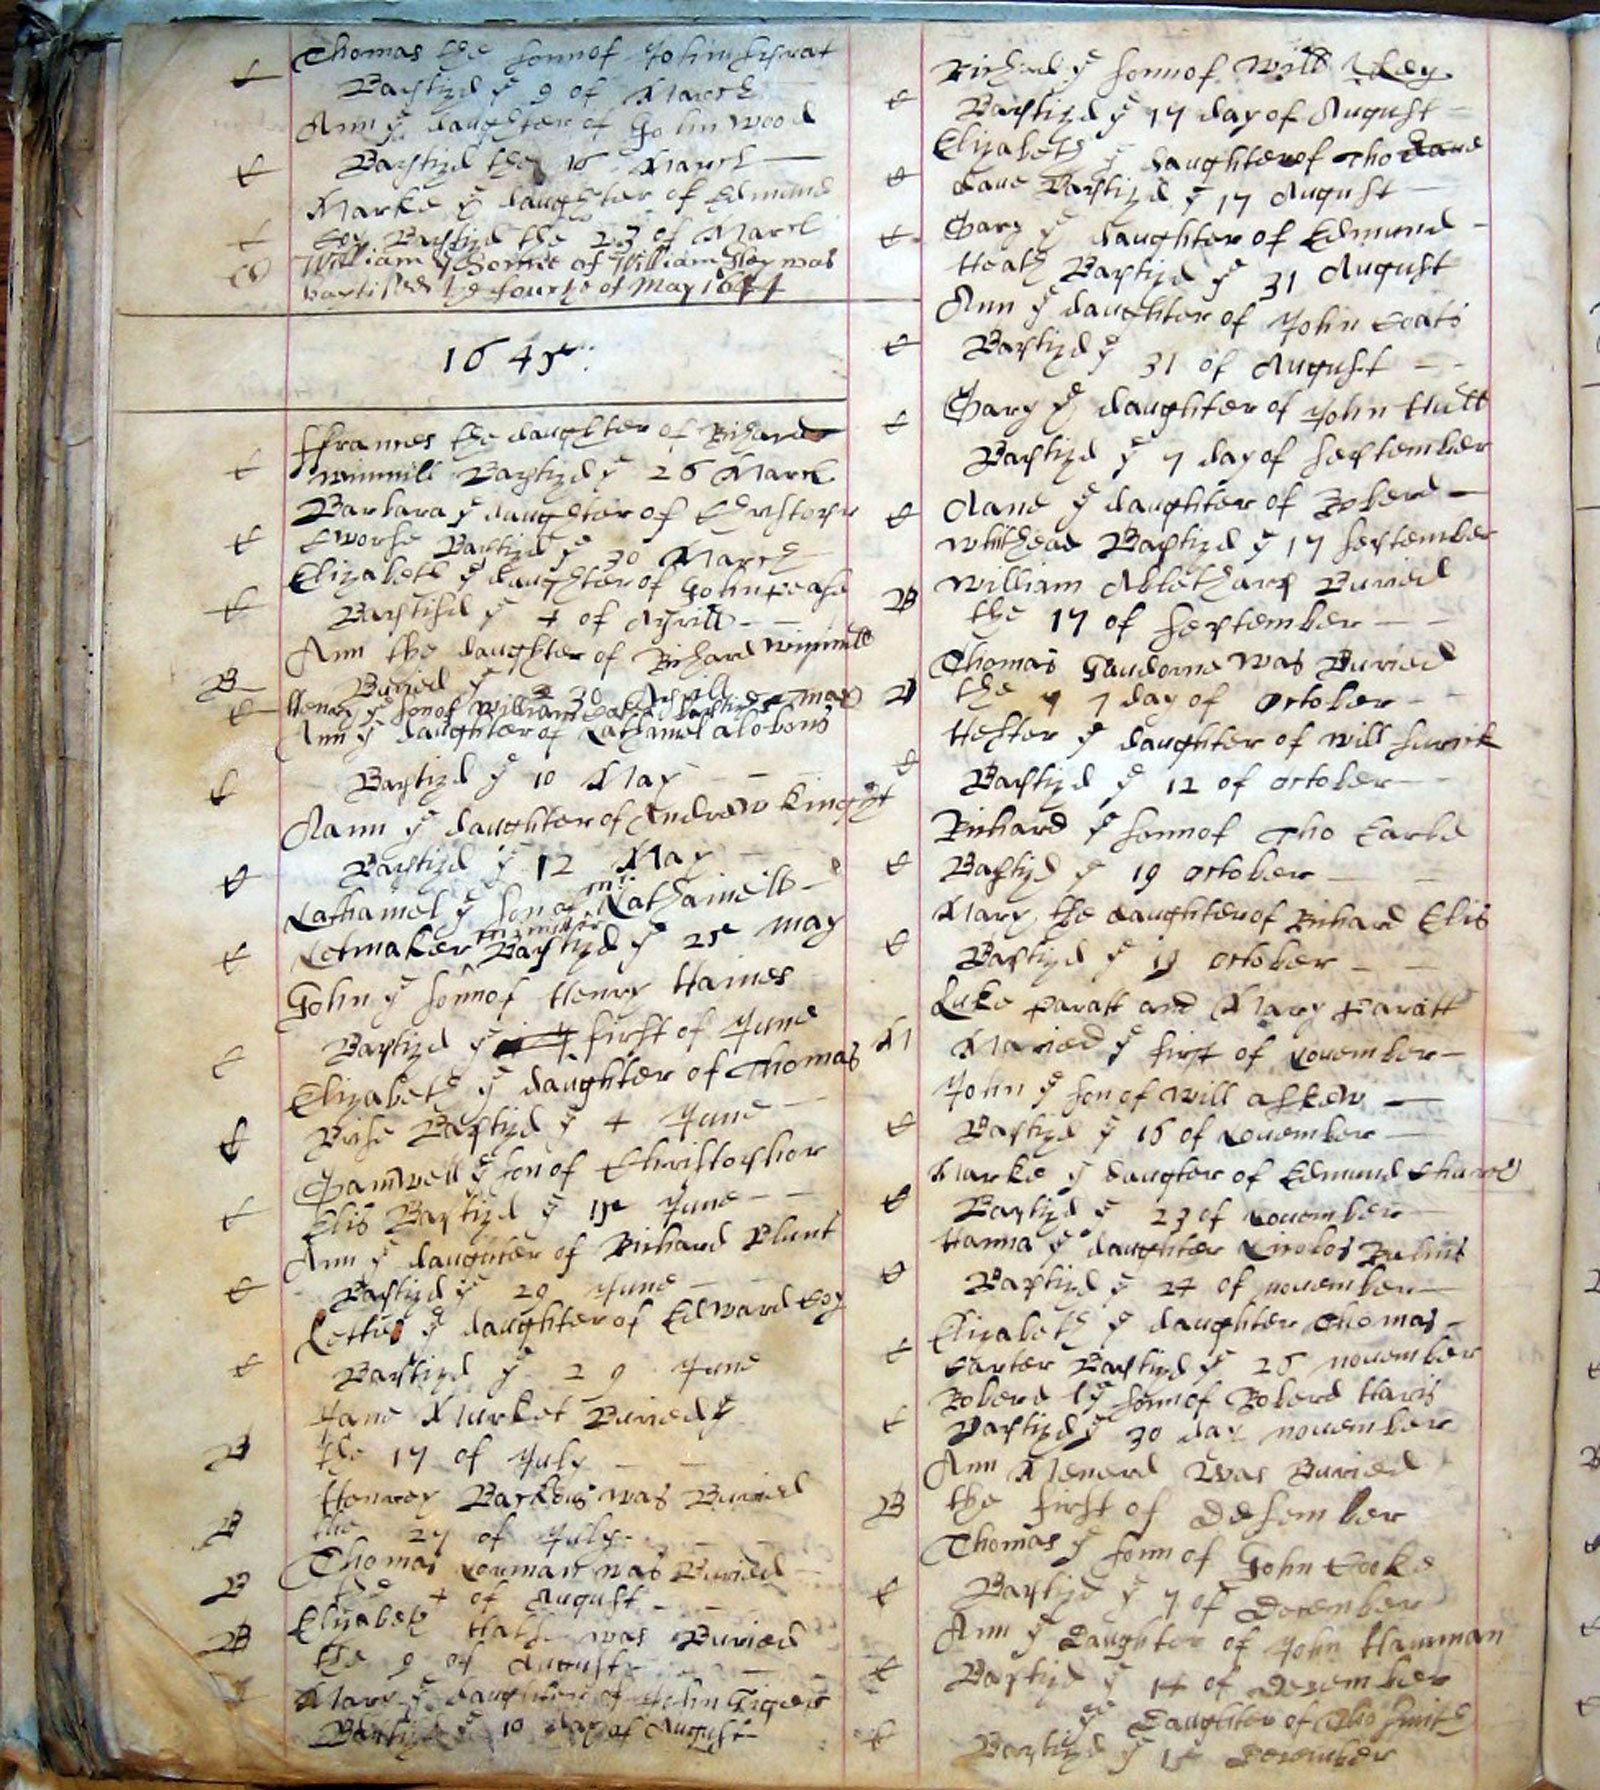 Thomas the sonn of John
Baptizd ye 9 of March
Ann ye daughter of John Wood
Baptizd the 16 March
Marke ye daughter of Edmund
Coy Baptizd the 23 of March
William ye Sonne of William was
baptised the fourth of May 1644
1645
ffrances the daughter of Richard
Baptizd ye 26 March
Barbara ye daughter of
Baptizd ye 30 March
Elizabeth ye daughter of John Pease
Baptisd ye 4 of Aprill
Ann the daughter of Richard
B Buried ye 30 Aprill
Henry ye son of William Baptizd May
Ann ye daughter of Nathaniel
Baptizd ye 10 May
Aann ye daughter of Andrew Kinght
Baptizd ye 12 May
Nathaniel ye son of Mr Nathaniell
Baptizd ye 25 May
John ye sonn of Henry Haines
Baptizd ye first of June
Elizabeth ye daughter of Thomas
Baptizd ye 4 June
Gamwell ye son of Christophor
Elis Baptizd ye 15 June
Ann ye daughter of Richard Blunt
Baptizd ye 29 June
Lettes ye daughter of Edward Coy
Baptizd ye 29 June
Jane Murket Buried ye
B the 17 of July
Henrey was Buried
B the 27 of July
Thomas was Buried
B the 4 of August
Elizabeth was Buried
B the 9 of August
Mary ye daughter of John
Baptizd ye 10 day of August
Richard ye sonn of Will
Baptizd ye 17 day of August
Elizabeth ye daughter of Tho
Dave Baptizd ye 17 August
Gary ye daughter of Edmund
Heath Baptizd ye 31 August
Ann ye daughter of John Coats
Baptizd ye 31 of August
Gary ye daughter of John Hull
Baptizd ye 7 day of September
Aane ye daughter of Roberd
Whithead Baptizd ye 17 September
B William Abletharp Buried
the 17 of September
Thomas was Buried
B the 7 day of October
Hester ye daughter of Will
Baptizd ye 12 of October
Richard ye sonn of Tho Earle
Baptizd ye 19 October
Mary the daughter of Richard Elis
Baptizd ye 19 October
Luke Paratt and Mary Paratt
M Maried ye first of November
John ye son of Will Askew
Baptizd ye 16 of November
Marke ye daugter of Edmund
Baptizd ye 23 of November
Hanna ye daughter Nicolos
Baptizd ye 24 of november
Elizabeth ye daughter Thomas
Carter Baptizd ye 26 november
Roberd ye sonn of Roberd Haris
Baptizd ye 30 day november
Ann was Buried
B the first of Desember
Thomas ye sonn of John Cooke
Baptizd ye 7 of December
Ann ye daughter of John Hamman
Baptizd ye 14 of December
ye daughter of Tho Smith
Baptizd ye 14 December